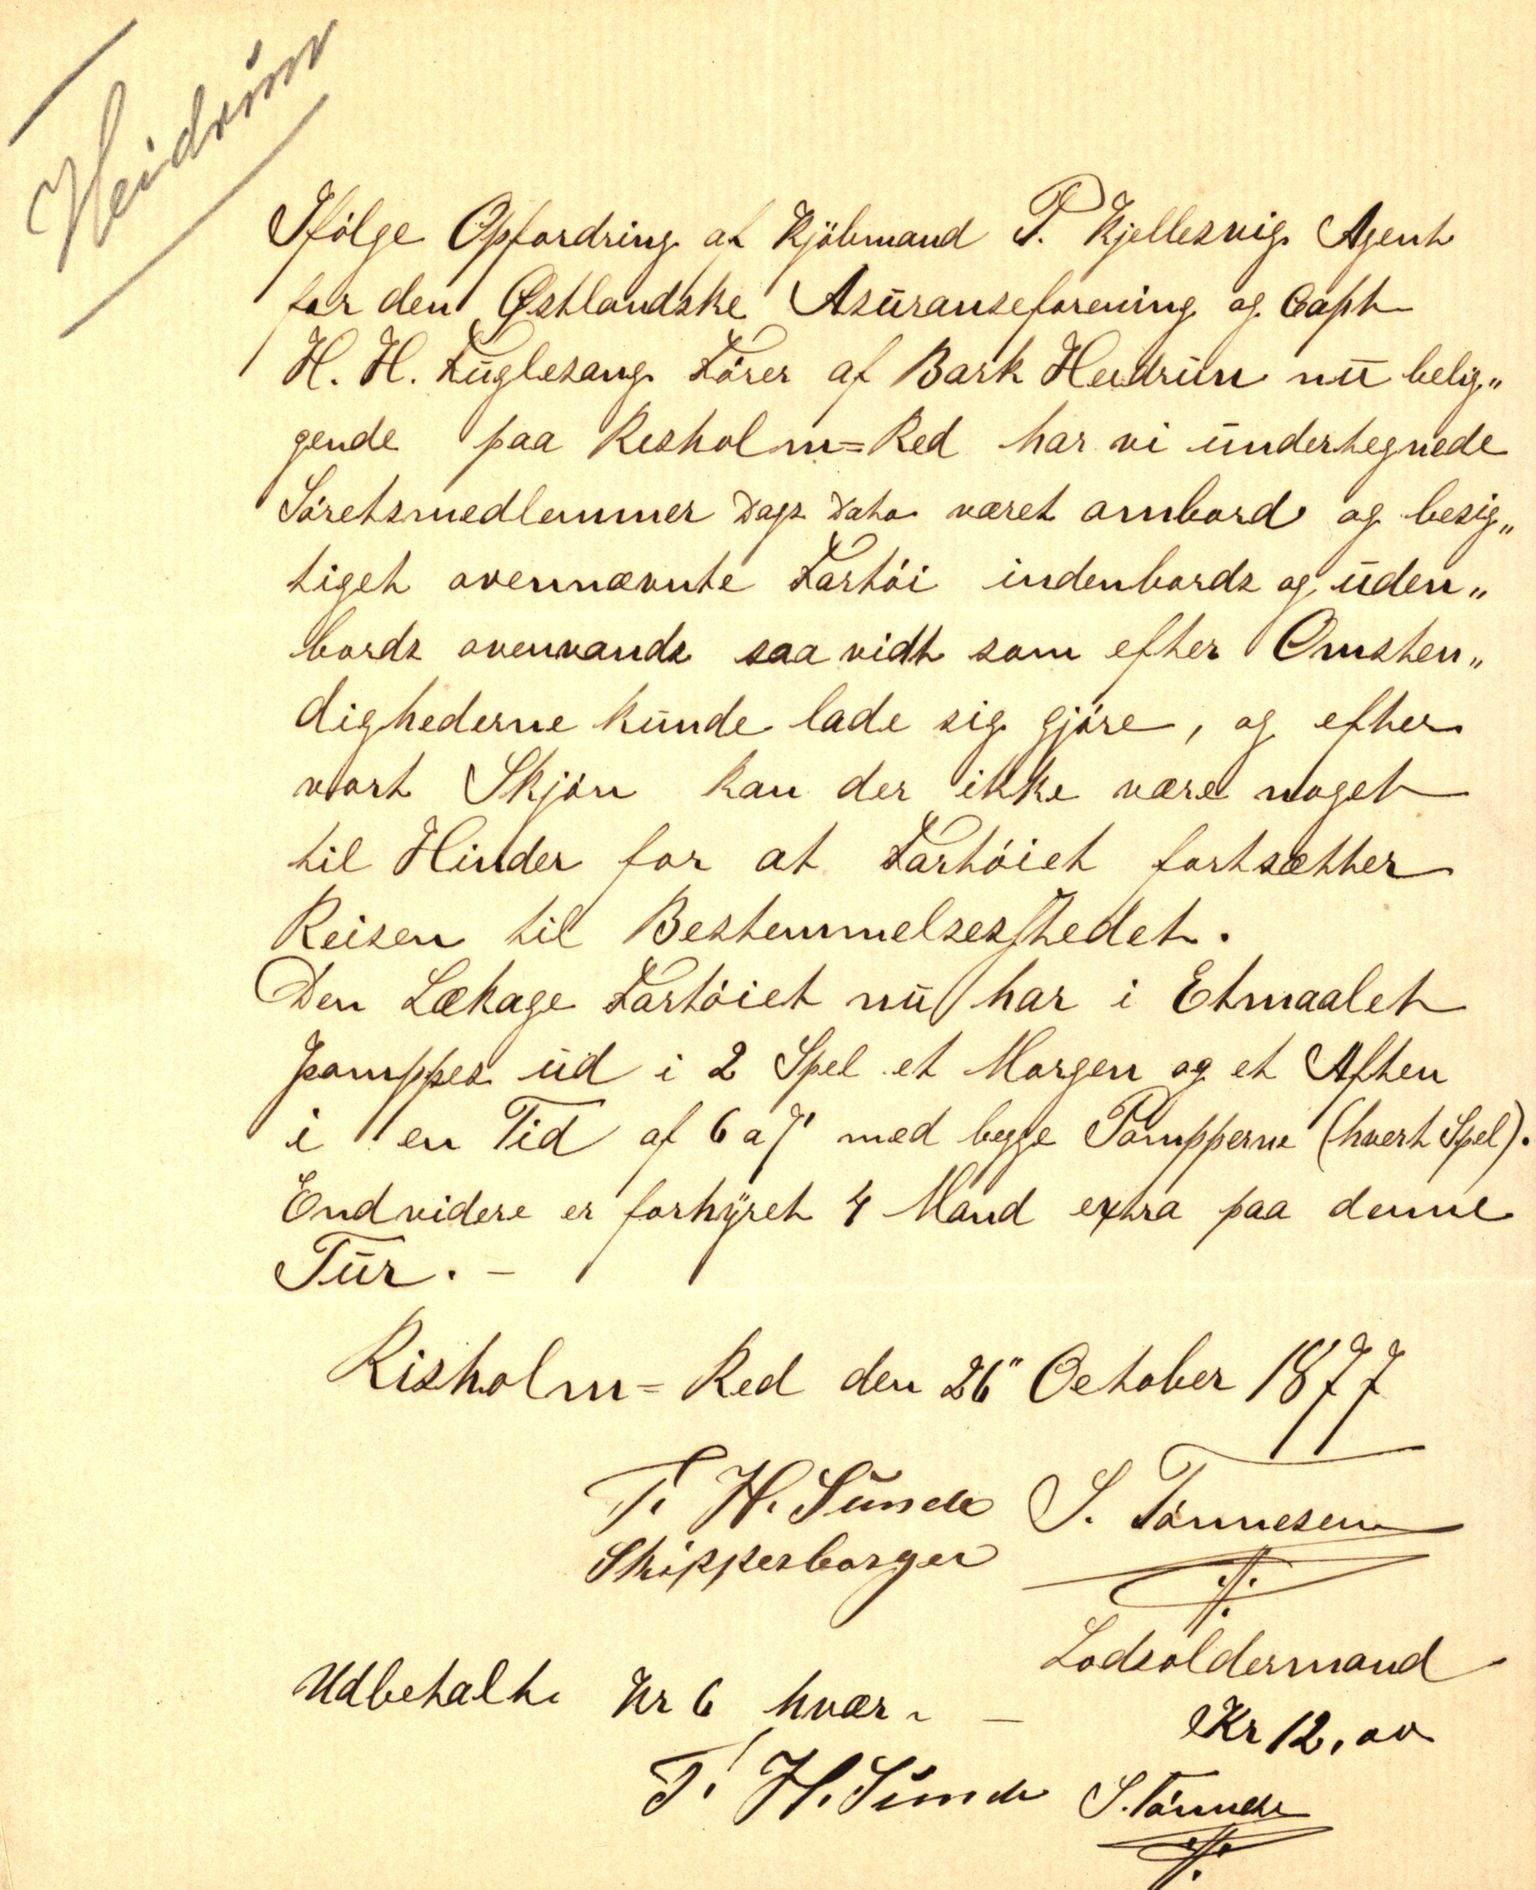 Heidrún
Ifölge Opfordring af Kjöbmand P. Kjellesvig Agent
for den Østlandske Asuranseforening og Capt
H. H. Fuglesang Förer af Bark Heidrun nu belig„
gende paa Risholm=Red har vi undertegnede
Söretsmedlemmer Dags Dato været ombord og besig„
tiget ovennævnte Fartöi indenbords og uden„
bords ovenvands saa vidt som efter Omsten„
dighederne kunde lade sig gjöre, og efter
vort Skjön kan der ikke være noget
til Hinder for at Fartöiet fortsætter
Reisen til Bestemmelsesstedet.
Den Lækage Fartöiet nu har i Etmaalet
pomppes ud i 2 Spel et Morgen og et Aften
i en Tid af 6 a 7' med begge Pompperne (hvert Spel).
Endvidere er forhyret 4 Mand extra paa denne
Tur. –
Risholm=Red den 26" October 1877
T. H. Sunde S. Tönnesen
Skipperborger
Lodsoldermand
Udbetalt Kr 6 hvær. –
Kr 12,00
T. H. Sunde S. Tönnesen